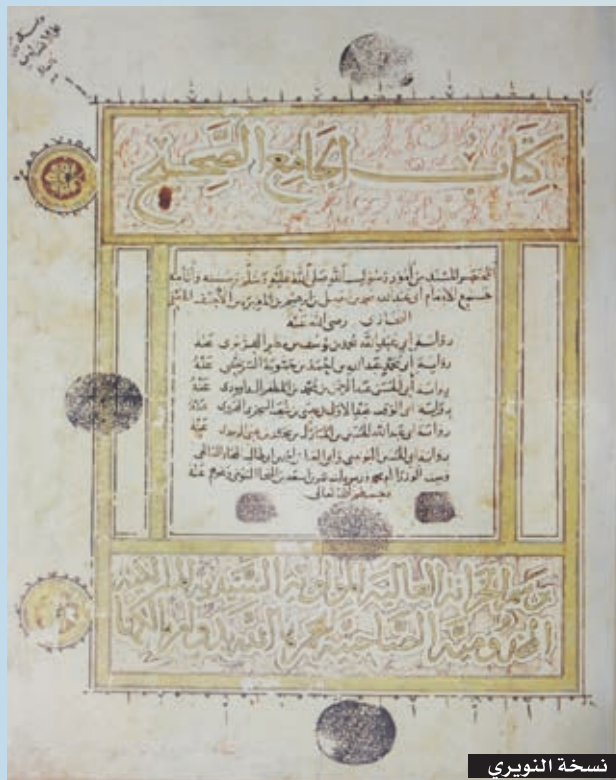 كتاب الجامع الصحيح
المختصر المسند من أمور رسول الله صلى الله عليه وسلم وسننه وأيامه
جمع الإمام أبي عبد الله محمد بن إسمعيل بن إبرهيم بن المغيرة بن الأحنف الجعفي
البخاري رضي الله عنه
رواية أبي عبد الله محمد بن يوسف بن مطر الفربري عنه
رواية أبي محمد عبد الله بن أحمد بن حمويه السرخسي عنه
رواية أبي الحسن عبد الرحمن بن محمد بن المظفر الداوودي عنه
رواية أبي الوقت عبد الأول بن عيسى بن شعيب السجزي الهروي عنه
رواية أبي عبد الله الحسين بن المبارك بن محمد بن يحيى الزبيدي عنه
رواية أبي العباس أحمد بن أبي طالب
وست الوزرا أم محمد عمر بن أسعد بن المنجا التنوخي عنه
رحمهم الله تعالى
برسم الخزانة العالية المولوية السيدية
المخدومية الصاحبية عمرها الله
نسخة النويري